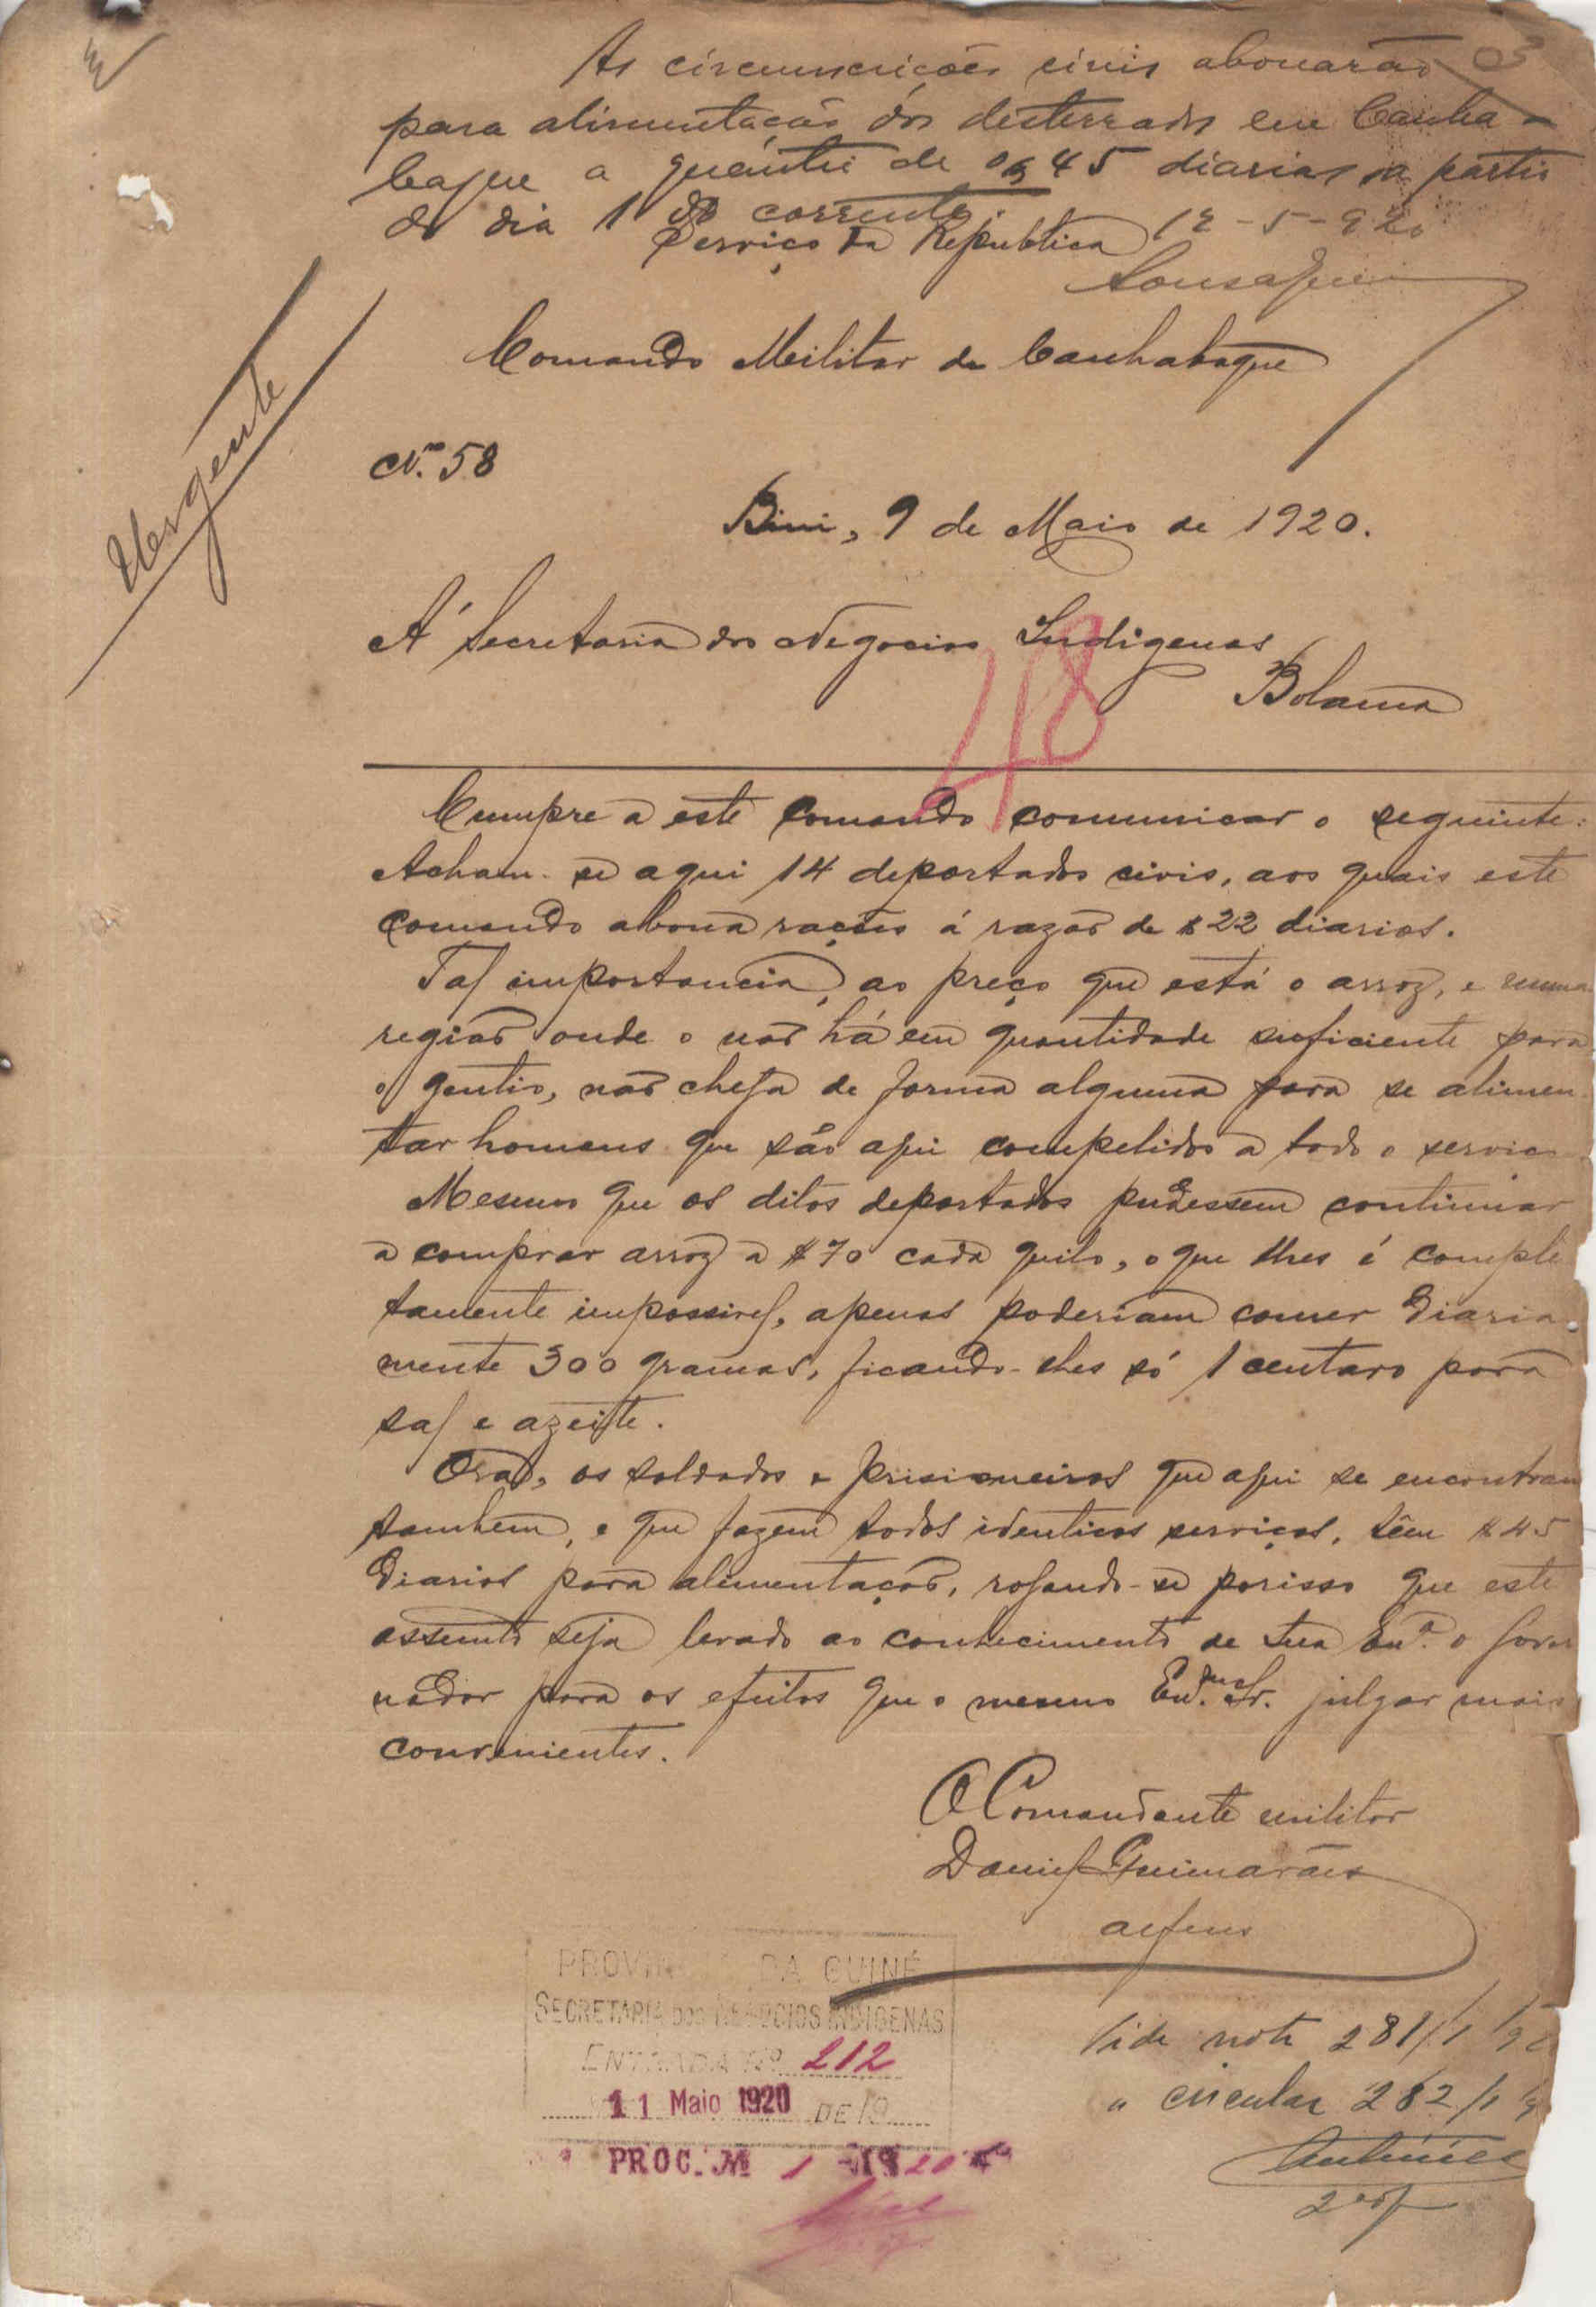 As circunscrições civis abonarão
para alimentação dos desterrados em Canha-
baque a quantia de $45 diarias a partir
do dia 1 do corrente.
12-5-920
Serviço da Republica
Urgente
Comando Militar de Canhabaque
N.º 58
Bini, 9 de Maio de 1920.
Á Secretaria dos Negocios Indigenas
Bolama
48
Cumpre a este comando comunicar o seguinte:
Acham-se aqui 14 deportados civis, aos quais este
comando abona rações á razão de $22 diarios.
Tal importancia, ao preço que está o arroz, e numa
região onde o não há em quantidade suficiente para
o gentio, não chega de forma alguma para se alimen-
tar homens que são aqui compelidos a todo o serviço
Mesmo que os ditos deportados pudessem continuar
a comprar arroz a $70 cada quilo, o que lhes é comple
tamente impossivel, apenas poderiam comer diaria-
mente 300 gramas, ficando-lhes só 1 centavo para
sal e azeite.
Ora, os soldados e prisioneiros que aqui se encontram
tambem, e que fazem todos identicos serviços, têm $45
diarios para alimentação, rogando-se porisso que este
assunto seja levado ao conhecimento de Sua Ex.ª o Gover
nador para os efeitos que o mesmo Ex.mo Sr. julgar mais
convenientes.
O Comandante militar
Daniel Guimarães
alferes
PROVINCIA DA GUINÉ
SECRETARIA DOS NEGOCIOS INDIGENAS
ENTRADA Nº 212
11 Maio 1920 DE 19
PROC. Nº 1 1920
Vide nota 281/1
" circular 282/1
Antunes